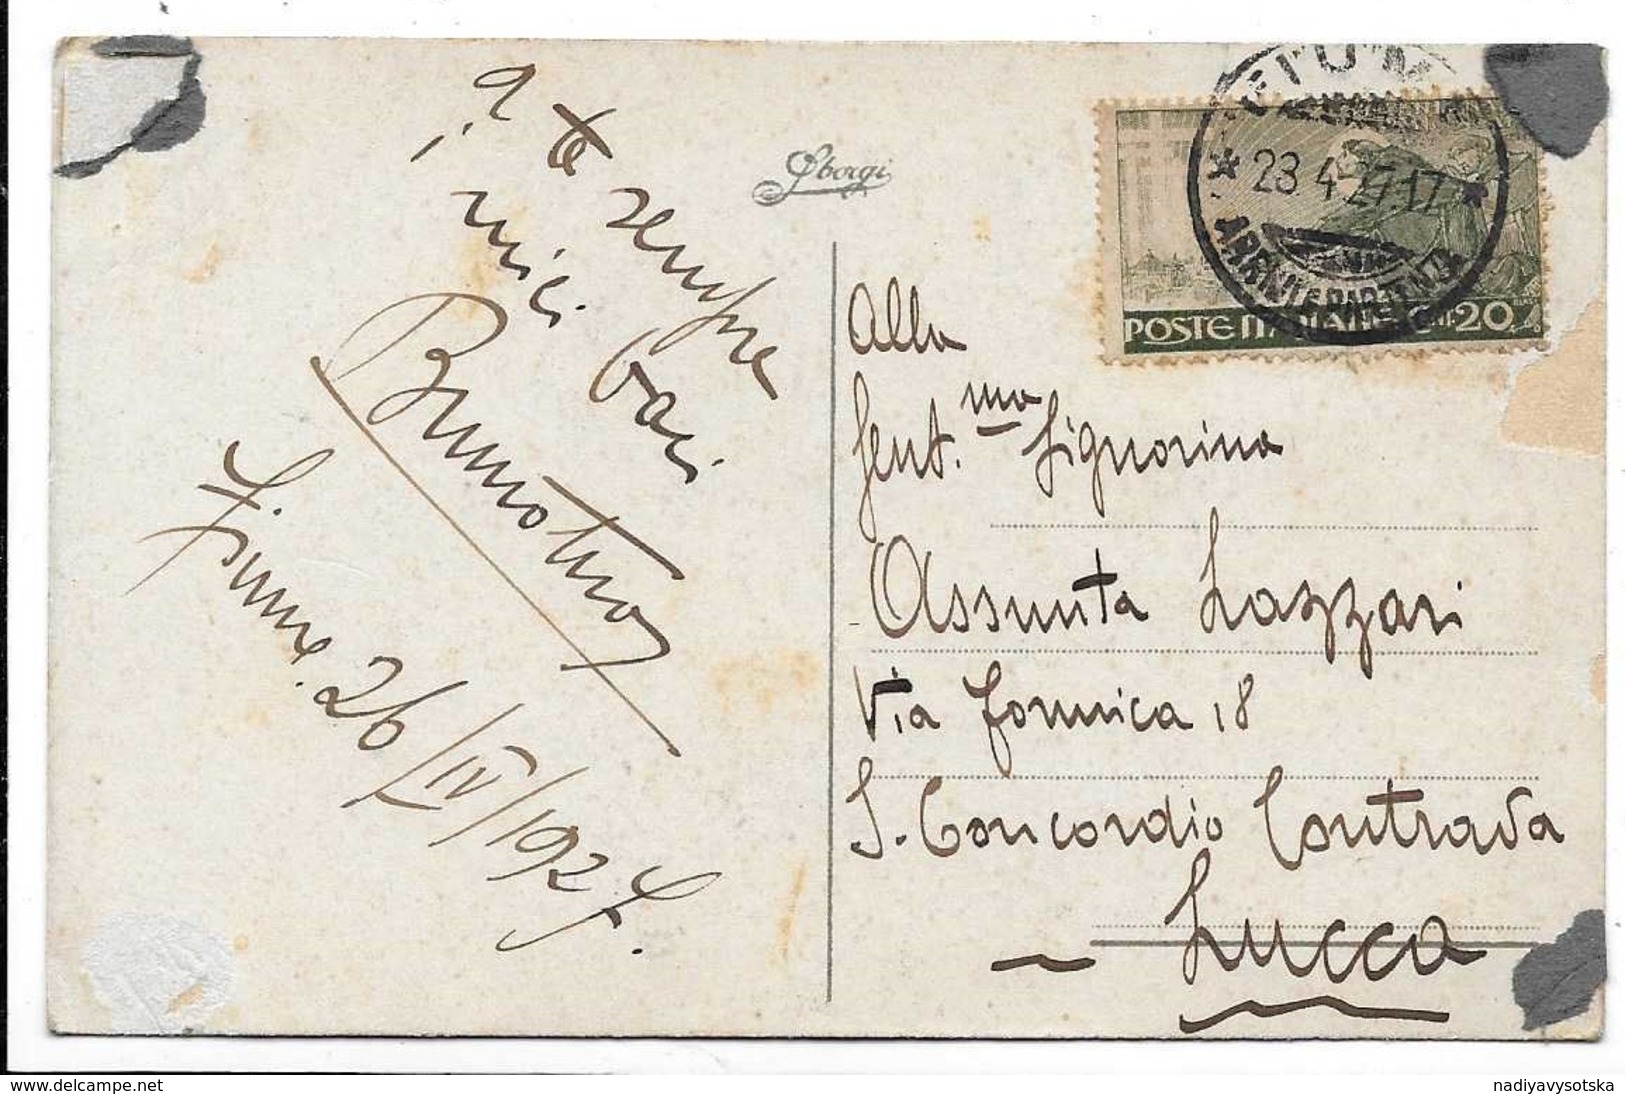 a te sempre
i miei baci
Brunetto
Fiume. 26/IV/1927.
Sborgi
FIUME
28 4.27.17
ARRIVI E PARTENZE
POSTE ITALIANE Cent 20
Alla
Gent.ma Signorina
Assunta Lazzari
Via Formica 18
S. Concordio Contrada
Lucca
www.delcampe.net
nadiyavysotska